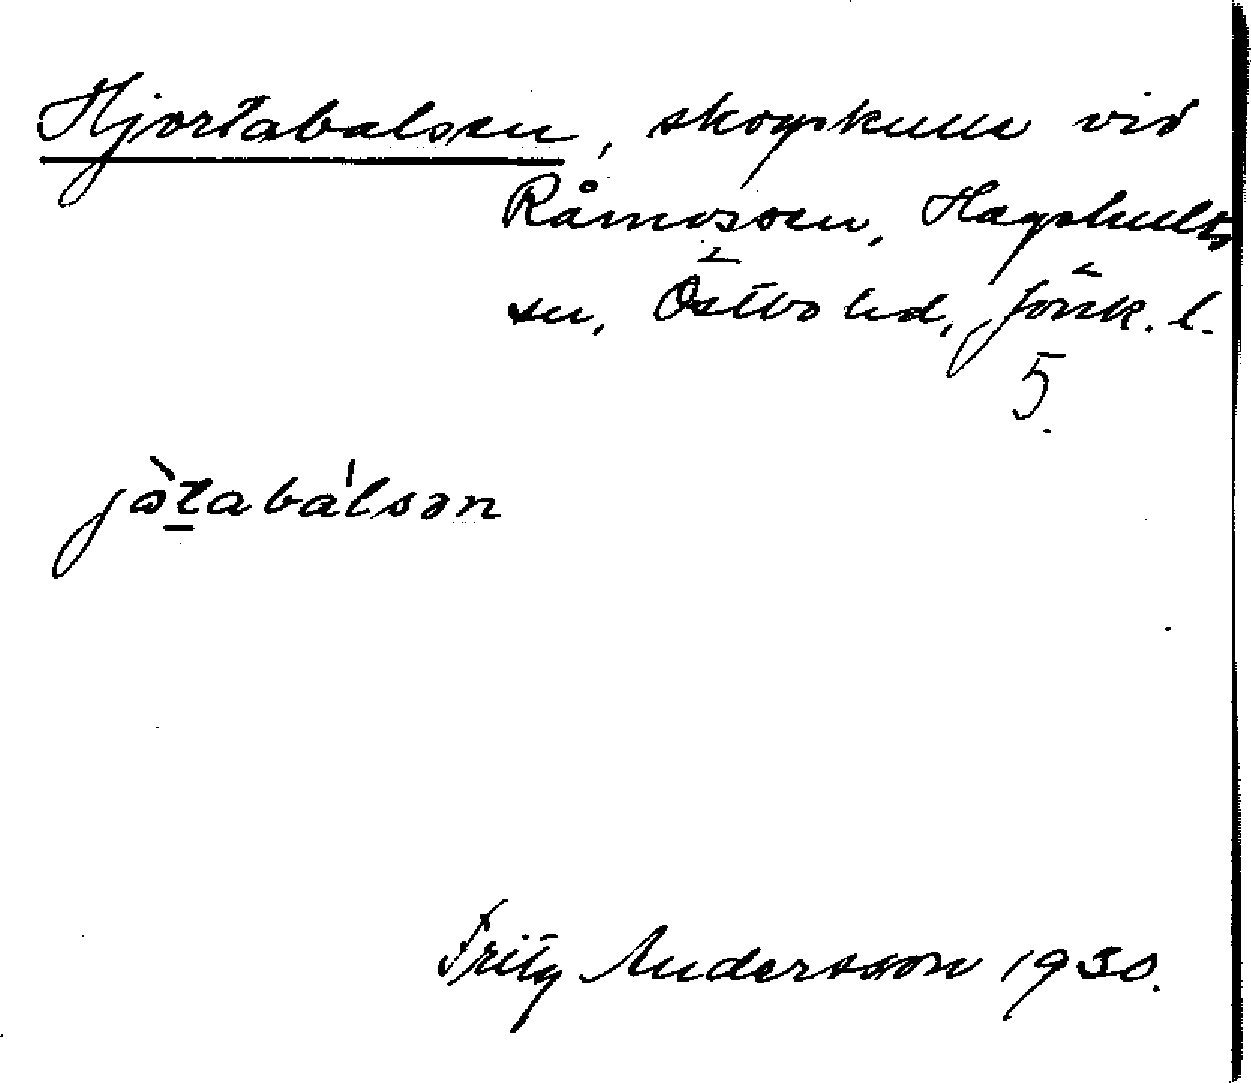 Hjortabalsen, skogskulle vid
Råmossen, Hagshults
sn, Östbo hd, Jönk. l.
5.
jòtabálsən
Fritz Andersson 1930.